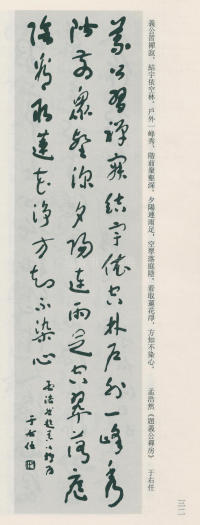 義公習禪寂，結宇依空林，戶外一峰秀，階前衆壑深，夕陽連雨足，空翠落庭陰，看取蓮花淨，方知不染心。 孟浩然《題義公禪房》 于右任
三二
義公習禪寂結宇依空林戶外一峰秀
階前衆壑深夕陽連雨足空翠落庭
陰看取蓮花淨方知不染心
于右任